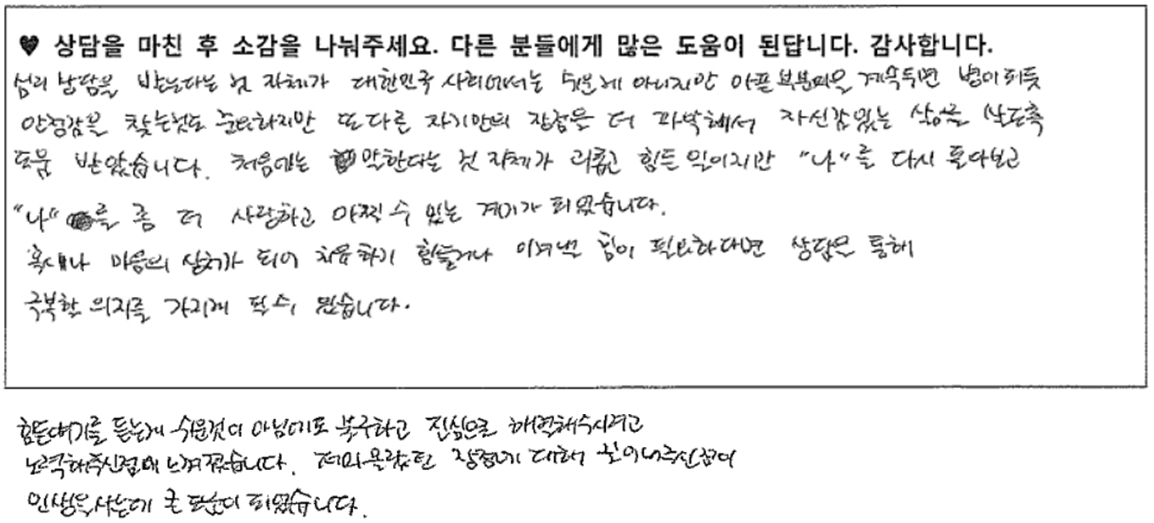 ♥ 상담을 마친 후 소감을 나눠주세요. 다른 분들에게 많은 도움이 된답니다. 감사합니다.
심리 상담을 받는다는 것 자체가 대한민국 사회에서는 쉬운게 아니지만 아픈 부분을 계속두면 병이되듯
안정감을 찾는것도 중요하지만 또 다른 자기만의 장점을 더 파악해서 자신감있는 삶을 살도록
도움 받았습니다. 처음에는 막한다는 것 자체가 괴롭고 힘든 일이지만 "나"를 다시 돌아보고
"나"를 좀 더 사랑하고 아낄 수 있는 계기가 되었습니다.
혹시나 마음의 상처가 되어 치유하기 힘들거나 이겨낼 힘이 필요하다면 상담을 통해
극복할 의지를 가지게 될수 있습니다.
힘든얘기를 듣는게 쉬운것이 아님에도 불구하고 진심으로 해결해주시려고
노력해주신점에 느껴졌습니다. 저의 몰랐던 장점에 대해 찾아내주신점이
인생을 사는데 큰 도움이 되었습니다.